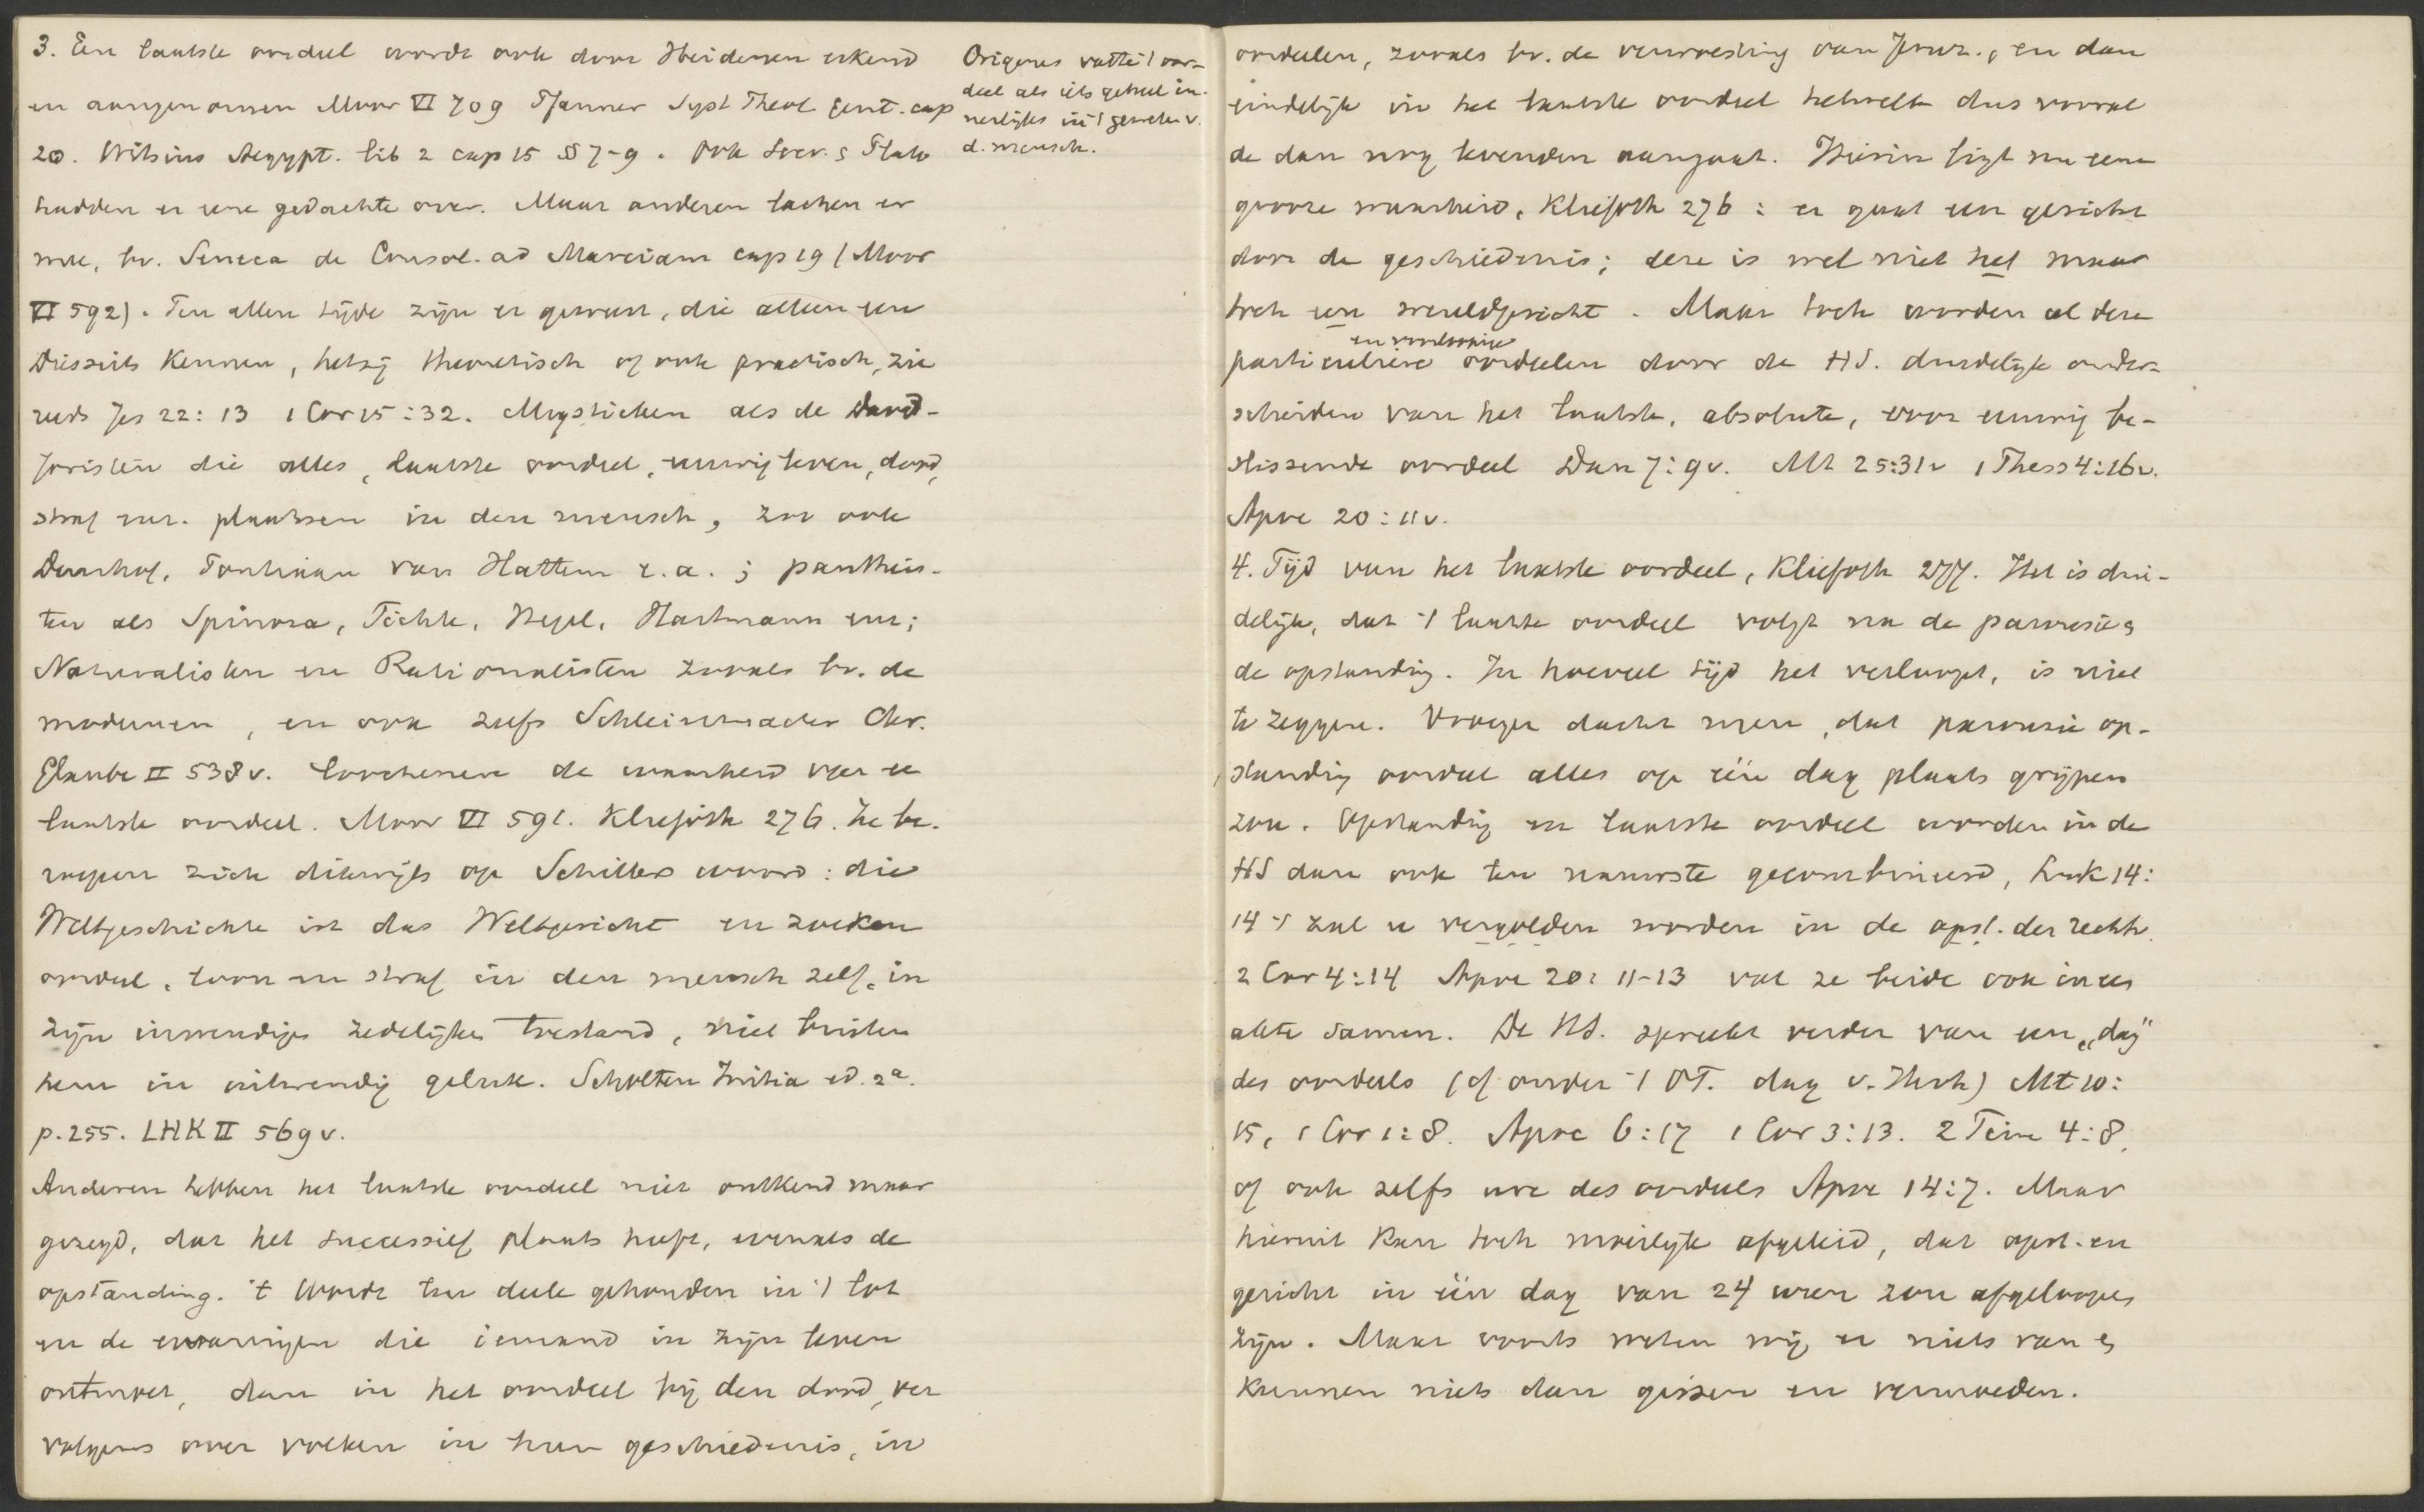 3. Een laatste oordeel wordt ook door Heidenen erkend
en aangenomen Moor VI 709 Pfanner Syst Theol gent. cap
20. Witsius Aegypt. lib 2 cap 15 §§ 7-9. Ook Socr. & Plato
hadden er eene gedachte over. Maar anderen lachen er
mee, bv. Seneca de Consol. ad Marciam cap 19 (Moor
VI 592). Ten allen tijde zijn er geweest, die alleen een
Diesseits kennen, hetzij theoretisch of ook practisch, zie
reeds Jes 22:13 1 Cor 15:32. Mystieken als de David-
Joristen die alles, laatste oordeel, eeuwig leven, dood,
straf enz. plaatsen in den mensch, zoo ook
Deurhof, Pontiaan van Hattem e.a.; pantheis-
ten als Spinoza, Fichte, Hegel, Hartmann enz;
Naturalisten en Rationalisten zooals bv. de
modernen, en ook zelfs Schleiermacher Chr.
Glaube II 538v. loochenen de waarheid van een
laatste oordeel. Moor VI 591. Kliefoth 276. Ze be-
roepen zich dikwijls op Schillers woord: die
Weltgeschichte ist das Weltgericht en zoeken
oordeel, loon en straf in den mensch zelf, in
zijn inwendige zedelijke toestand, niet buiten
hem in uitwendig geluk. Scholten Initia ed. 2a.
p. 255. LHK II 569v.
Anderen hebben het laatste oordeel niet ontkend maar
gezegd, dat het successief plaats heeft, evenals de
opstanding. 't Wordt ten deele gehouden in 't lot
en de ervaringen die iemand in zijn leven
ontmoet, dan in het oordeel bij den dood, ver
volgens over volken in hun geschiedenis, in
Origenes vatte 't oor-
deel als iets geheel in-
nerlijks in 't geweten v.
d. mensch.
oordeelen, zooals bv. de verwoesting van Jeruz., en dan
eindelijk in het laatste oordeel hetwelk dus vooral
de dan nog levenden aangaat. Hierin ligt nu eene
groote waarheid, Kliefoth 276: er gaat een gericht
door de geschiedenis; deze is wel niet het maar
toch een wereldgericht. Maar toch worden al deze
en voorloopige
particuliere oordeelen door de HS. duidelijk onder-
scheiden van het laatste, absolute, voor eeuwig be-
slissende oordeel Dan 7:9v. Mt 25:31v 1 Thess 4:16v.
Apoc 20:11v.
4. Tijd van het laatste oordeel, Kliefoth 277. Het is dui-
delijk, dat 't laatste oordeel volgt na de parousie &
de opstanding. In hoeveel tijd het verloopt, is niet
te zeggen. Vroeger dacht men, dat parousie op-
standing oordeel alles op één dag plaats grijpen
zou. Opstanding en laatste oordeel worden in de
HS dan ook ten nauwste gecombineerd, Luk 14:
14 't zal u vergolden worden in de opst. der rechtv.
2 Cor 4:14 Apoc 20:11-13 vat ze beide ook in een
akte samen. De HS. spreekt verder van een „dag"
des oordeels (of onder 't OT. dag v. Jhvh) Mt 10:
15, 1 Cor 1:8. Apoc 6:17 1 Cor 3:13. 2 Tim 4:8,
of ook zelfs ure des oordeels Apoc 14:7. Maar
hieruit kan toch moeilijk afgeleid, dat opst. en
gericht in één dag van 24 uren zou afgeloopen
zijn. Maar voorts weten wij er niets van &
kunnen niets dan gissen en vermoeden.